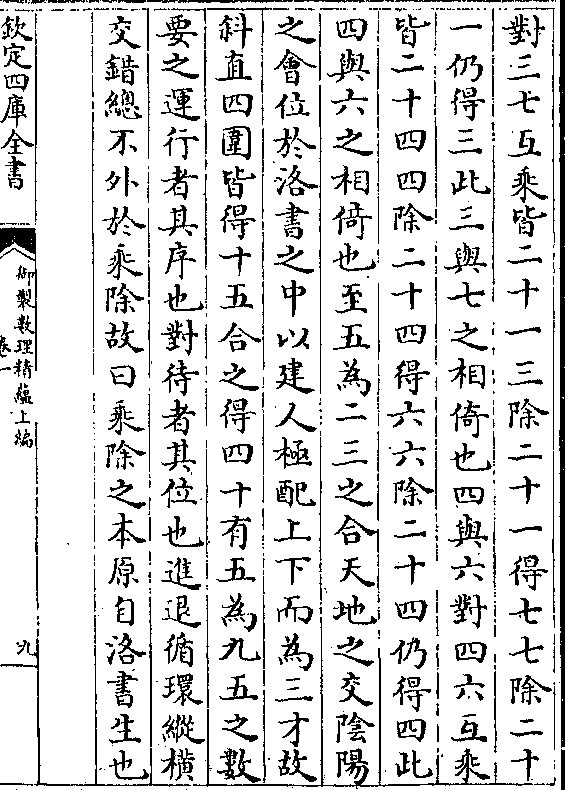 對三七互乘皆二十一三除二十一得七七除二十
一仍得三此三與七之相倚也四與六對四六互乘
皆二十四四除二十四得六六除二十四仍得四此
四與六之相倚也至五為二三之合天地之交陰陽
之會位於洛書之中以建人極配上下而為三才故
斜直四圍皆得十五合之得四十有五為九五之數
要之運行者其序也對待者其位也進退循環縱橫
交錯總不外於乘除故曰乘除之本原自洛書生也
欽定四庫全書
御製數理精蘊上編
卷一
九